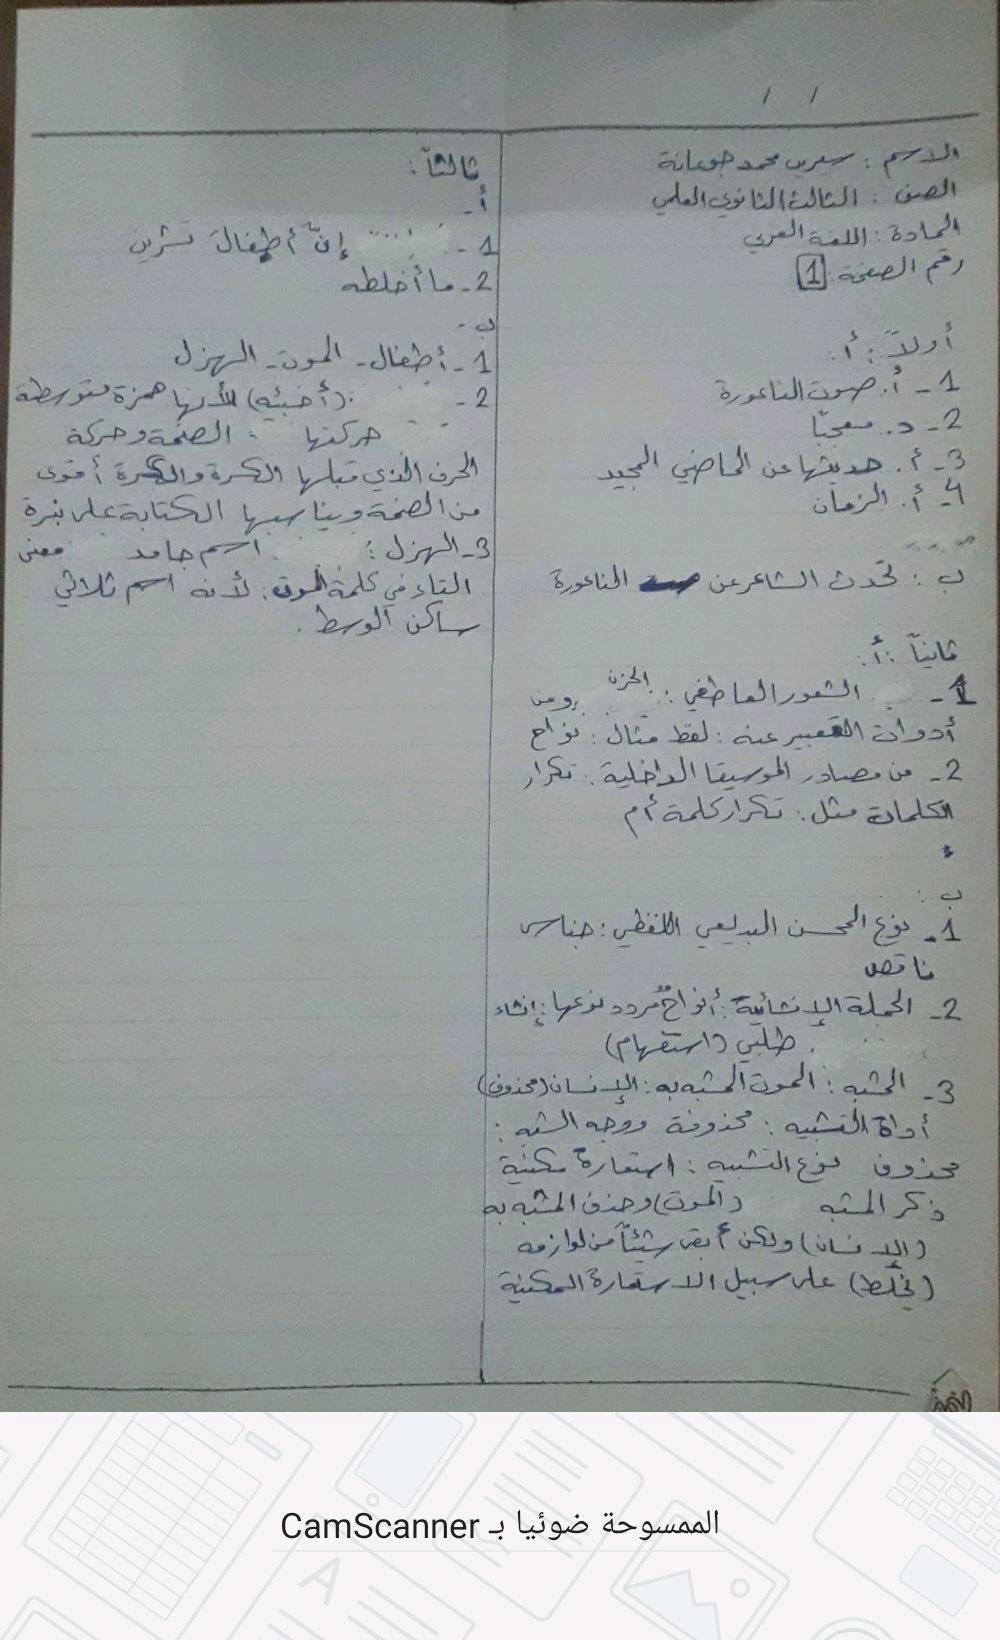 / /
الاسم : سيرين محمد جمعانة
الصف : الثالث الثانوي العلمي
المادة : اللغة العربي
رقم الصفحة : 1
أولاً : أ :
1 - أ. صوت الناعورة
2 - د. معجبًا
3 - أ. حديثها عن الماضي المجيد
4 - أ. الزمان
ب : تحدث الشاعر عن الناعورة
ثانياً : أ :
1 - الشعور العاطفي : الحزن ومن
أدوات التعبير عنه : لفظ مثال : نواح
2 - من مصادر الموسيقا الداخلية : تكرار
الكلمات مثل : تكرار كلمة أم
ب :
1 - نوع المحسن البديعي اللفظي : جناس
ناقص
2 - الجملة الإنشائية : أنواحٌ نوعها : إنشاء
طلبي (استفهام)
3 - المشبه : الموت المشبه به : الإنسان (محذوف)
أداة التشبيه : محذوفة ووجه الشبه :
محذوف نوع التشبيه : استعارة مكنية
ذكر المشبه (الموت) وحذف المشبه به
(الإنسان) ولكن أبقى شيئاً من لوازمه
(يخلّط) على سبيل الاستعارة المكنية
ثالثاً :
أ -
1 - إنّ أطفالَ تشرين
2 - ما أخلطه
ب -
1 - أطفال - الموت - الهزل
2 - (أخبئه) لأنها همزة متوسطة
حركتها : الضمة وحركة
الحرف الذي قبلها الكسرة والكسرة أقوى
من الضمة ويناسبها الكتابة على نبرة
3 - الهزل : اسم جامد معنى
التاء في كلمة الموت : لأنه اسم ثلاثي
ساكن الوسط .
الممسوحة ضوئيا بـ CamScanner